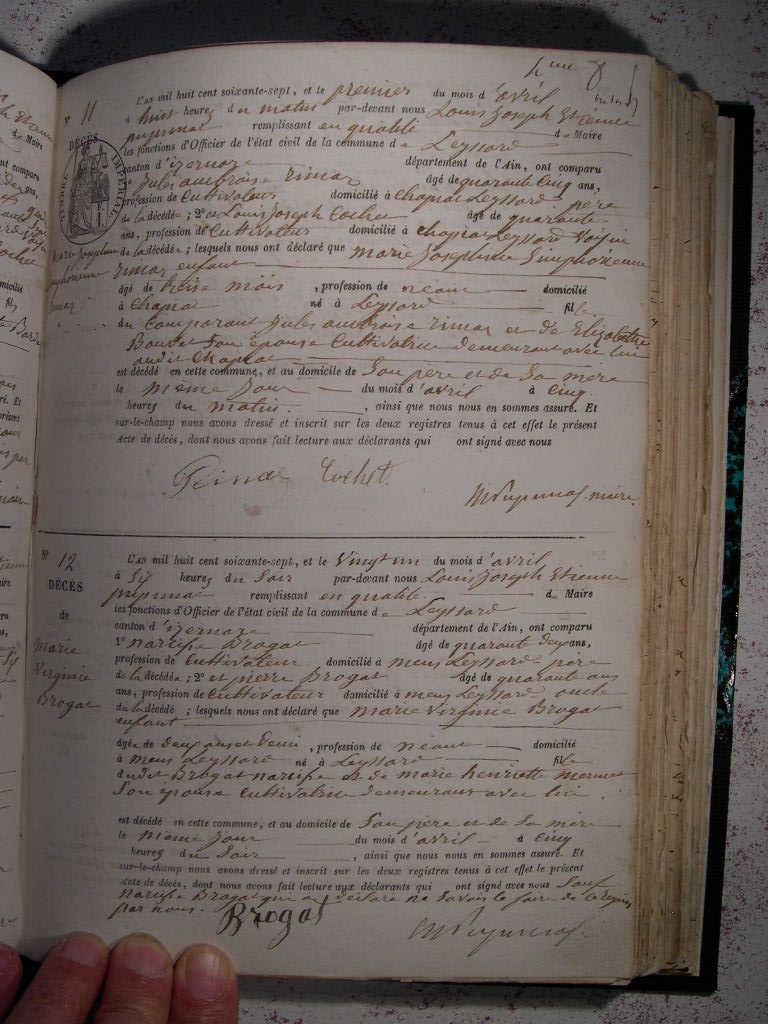 4me 8
N° 11
L'AN mil huit cent soixante-sept, et le premier du mois d'avril
à huit heures du matin par-devant nous Louis Joseph Etienne
remplissant en qualité de Maire
les fonctions d'Officier de l'état civil de la commune de Leyssard
DÉCÈS
canton d'izernore département de l'Ain, ont comparu
TIMBRE IMPÉRIAL
1° Jules ambroise rimar âgé de quarante cinq ans,
profession de Cultivateur domicilié à chapiat Leyssard père
de la décédée ; 2° et Louis Joseph Cochet âgé de quarante
ans, profession de Cultivateur domicilié à chapiat Leyssard Voisin
Marie Josephine
de la décédée ; lesquels nous ont déclaré que marie Josephine Simphorienne
rimar enfant
âgé de treize mois , profession de néant domicilié
à Chapiat né à Leyssard fille
du Comparant Jules ambroise rimar et de Elizabeth
Bouvet Son épouse Cultivatrice demeurant avec lui
audit Chapiat
est décédé en cette commune, et au domicile de Son père et de Sa mère
le même Jour du mois d'avril à Cinq
heures du matin. , ainsi que nous nous en sommes assuré. Et
sur-le-champ nous avons dressé et inscrit sur les deux registres tenus à cet effet le présent
Acte de décès, dont nous avons fait lecture aux déclarants qui ont signé avec nous
Cochet
maire
N° 12
L'AN mil huit cent soixante-sept, et le Vingt un du mois d'avril
DÉCÈS
à Six heures du Soir par-devant nous Louis Joseph Etienne
remplissant en qualité de Maire
de
les fonctions d'Officier de l'état civil de la commune de Leyssard
canton d'izernore département de l'Ain, ont comparu
Marie
Virginie
Brogat
1° narcisse Brogat âgé de quarante deux ans,
profession de Cultivateur domicilié à mens Leyssard père
de la décédée ; 2° et pierre Brogat âgé de quarante ans
ans, profession de Cultivateur domicilié à mens Leyssard oncle
de la décédé ; lesquels nous ont déclaré que marie Virginie Brogat
enfant
âgée de deux ans et demi , profession de néant domicilié
à mens Leyssard né à Leyssard fille
dudit Brogat narcisse et de marie henriette mermet
Son épouse Cultivatrice demeurant avec lui
est décédé en cette commune, et au domicile de Son père et de Sa mère
le même Jour du mois d'avril à Cinq
heures du Soir , ainsi que nous nous en sommes assuré. Et
sur-le-champ nous avons dressé et inscrit sur les deux registres tenus à cet effet le présent
Acte de décès, dont nous avons fait lecture aux déclarants qui ont signé avec nous Sauf
narcisse Brogat qui a déclaré ne Savoir le faire de ce requis
par nous.
Brogat